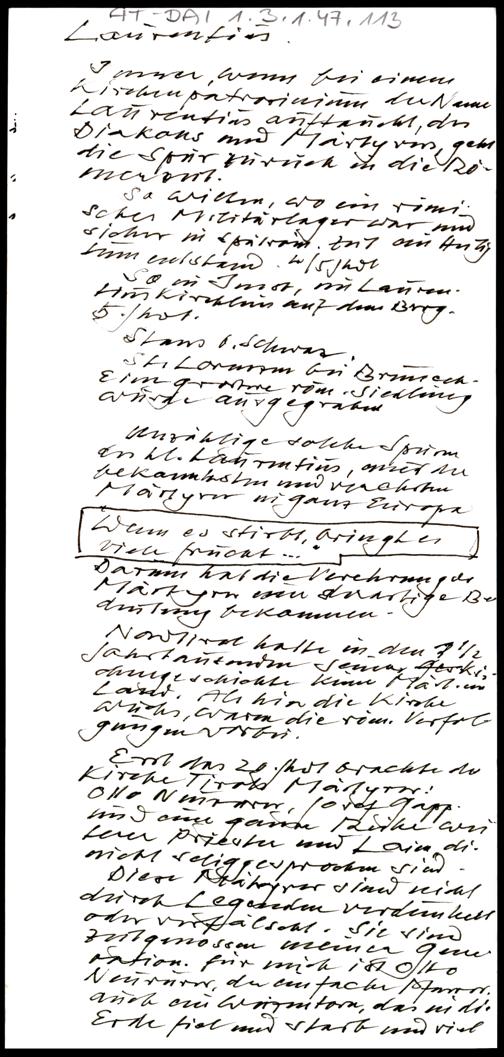 AT-DAI 1.3.1.47.113
Laurentius.
Immer, wenn bei einem
Kirchenpatrozinium der Name
Laurentius auftaucht, des
Diakons und Märtyrers, geht
die Spur zurück in die Rö-
merzeit.
So Wilten, wo ein römi-
sches Militärlager war und
sicher in spätröm. Zeit ein Heilig
tum entstand. 4/5 Jhdt
So in Imst, ein Lauren-
tiuskirchlein auf dem Berg.
5. Jhdt.
Stans b. Schwaz.
St. Lorenzen bei Bruneck.
Eine grössere röm. Siedlung
wurde ausgegraben
Unzählige solche Spuren
des hl. Laurentius, eines der
bekanntesten und verehrten
Märtyrer in ganz Europa
Wenn es stirbt, bringt es
viele Frucht..."
Darum hat die Verehrung der
Märtyrer eine derartige Be
deutung bekommen.
Nordtirol hatte in den 1 1/2
Jahrtausenden seiner
chengeschichte keine Märt. im
Land. Als hier die Kirche
wuchs, waren die röm. Verfol
gungen vorbei.
Erst das 20. Jhdt brachte der
Kirche Tirols Märtyrer:
Otto Neururer, Josef Gapp.
und eine ganze Reihe wei
terer Priester und Laien, die
nicht seliggesprochen sind.
Diese Märtyrer sind nicht
durch Legenden verdunkelt
oder verfälscht. Sie sind
Zeitgenossen meiner Gene
ration. Für mich ist Otto
Neururer, der einfache Pfarrer,
auch ein Weizenkorn, das in die
Erde fiel und starb und viel